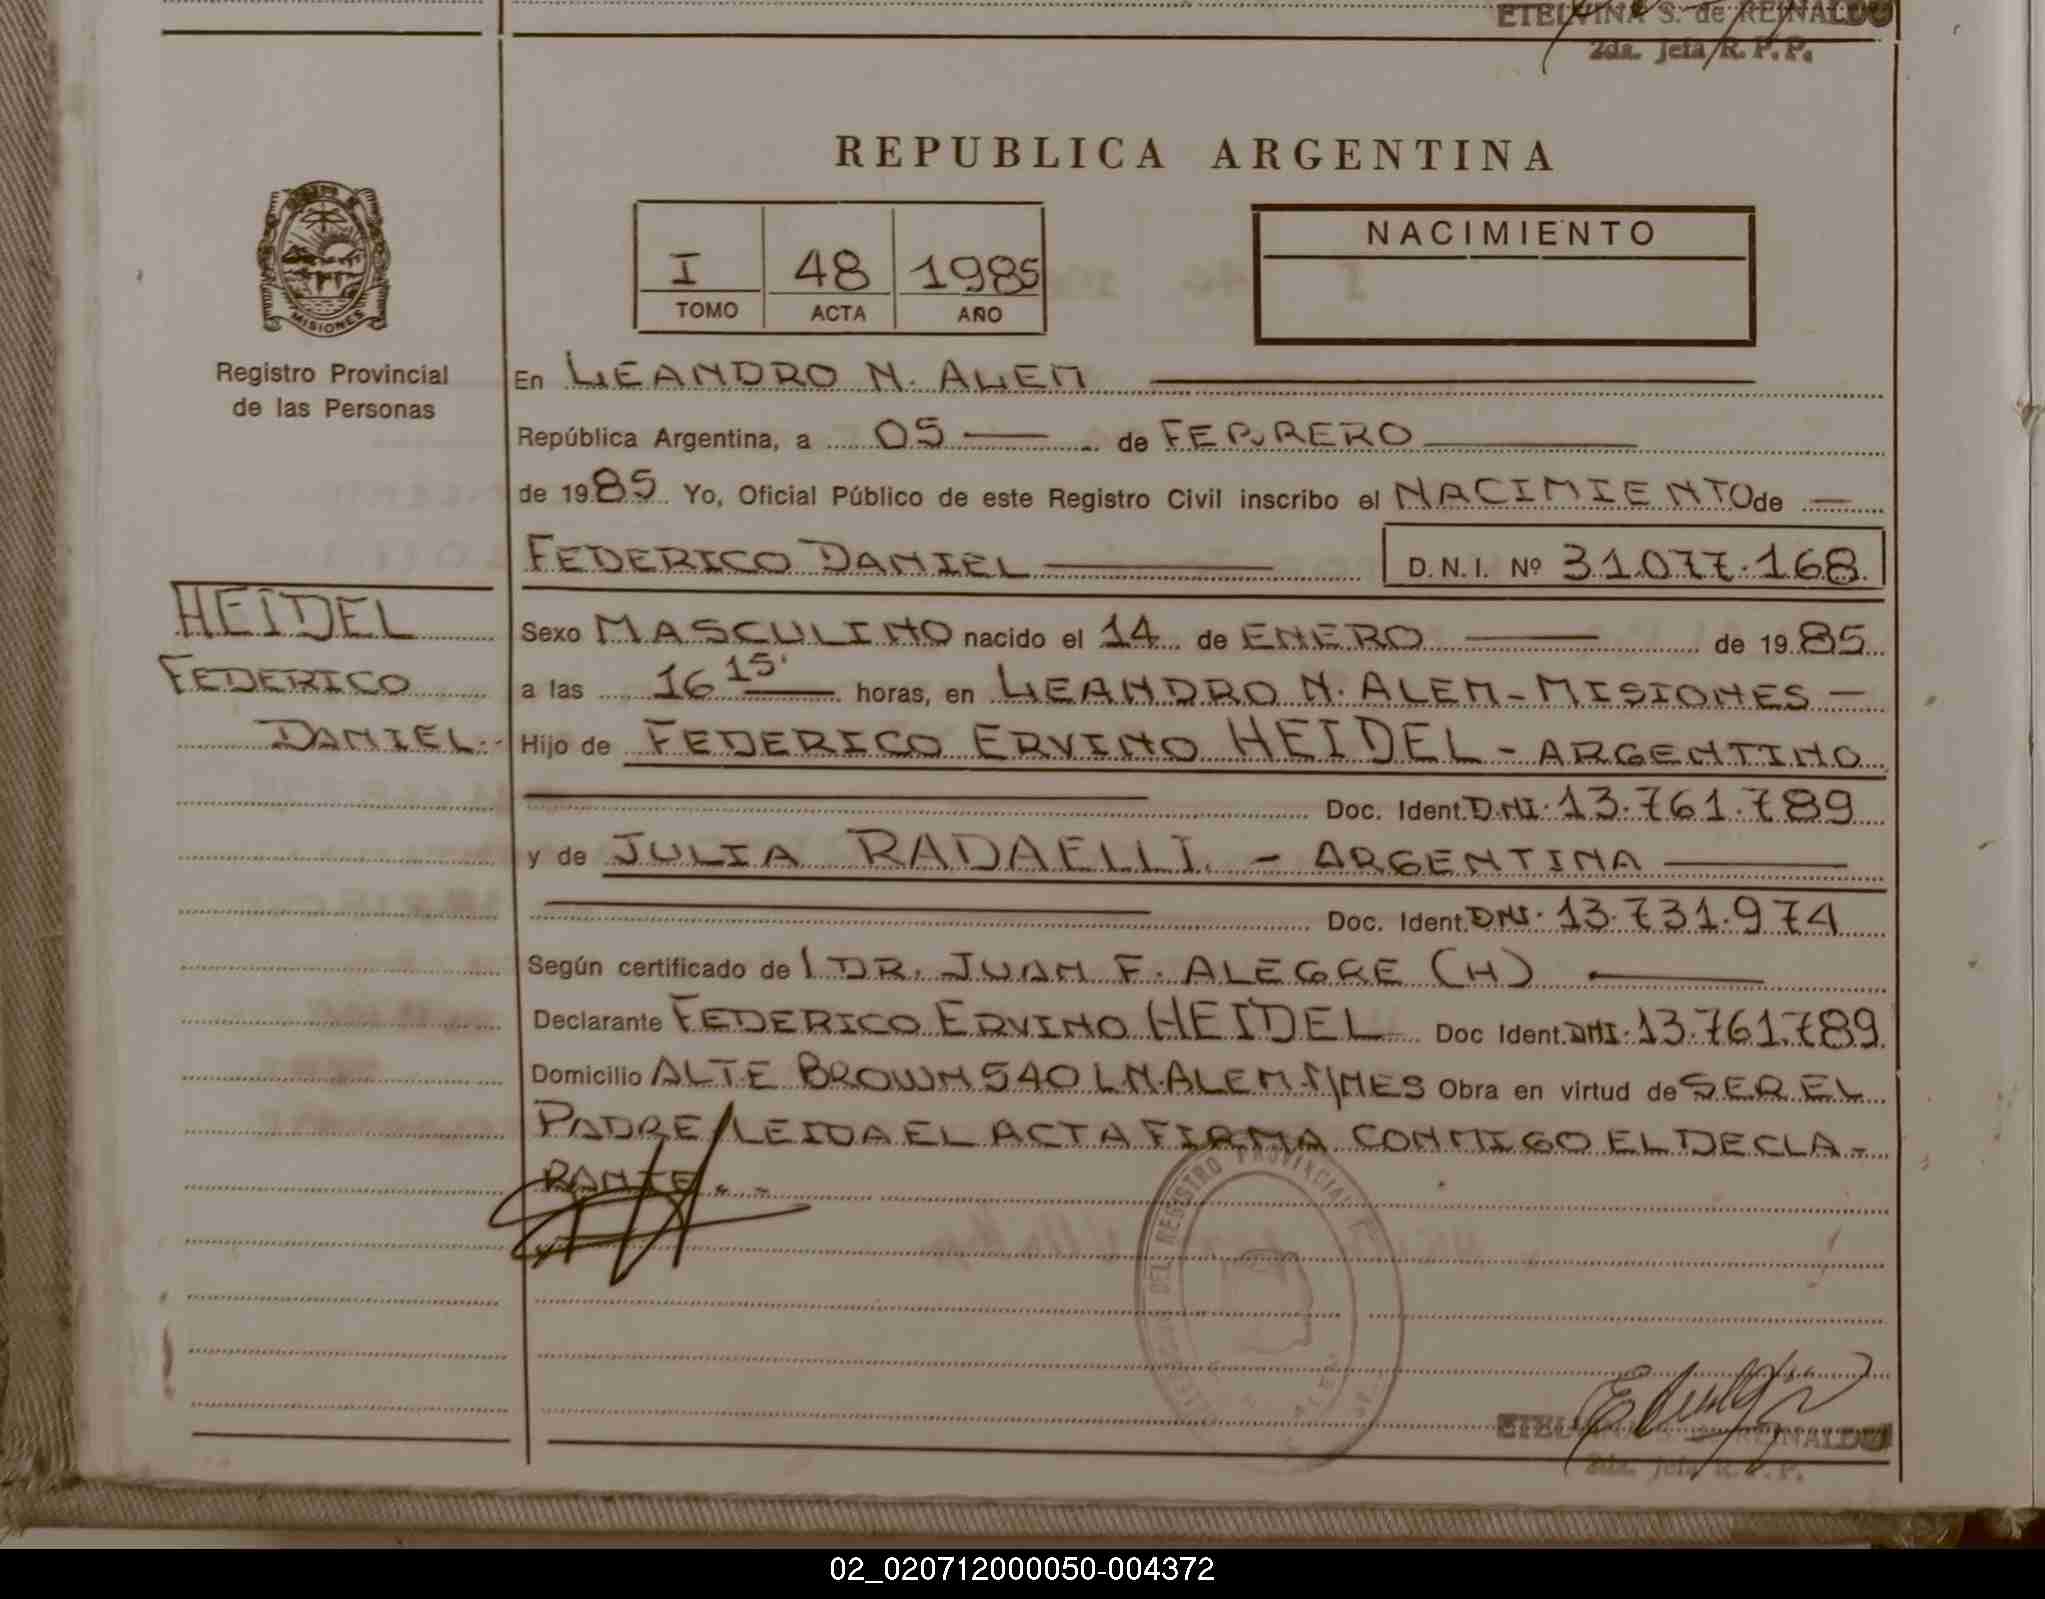 ETELVINA S. de REINALDO
2da. Jefa R. P. P.
REPUBLICA ARGENTINA
NACIMIENTO
I 48 1985
TOMO ACTA AÑO
MISIONES
Registro Provincial
de las Personas
En LEANDRO N. ALEM
República Argentina, a 05 de FEBRERO
de 1985 Yo, Oficial Público de este Registro Civil inscribo el NACIMIENTO de
FEDERICO DANIEL D.N.I. Nº 31.077.168
HEIDEL
FEDERICO
DANIEL.-
Sexo MASCULINO nacido el 14 de ENERO de 1985
a las 16 15' horas, en LEANDRO N. ALEM - MISIONES -
Hijo de FEDERICO ERVINO HEIDEL - ARGENTINO
Doc. Ident. DNI. 13.761.789
y de JULIA RADAELLI. - ARGENTINA
Doc. Ident. DNI. 13.731.974
Según certificado de DR. JUAN F. ALEGRE (H)
Declarante FEDERICO ERVINO HEIDEL Doc Ident. DNI. 13.761.789
Domicilio ALTE BROWN 540 L.N.ALEM.M/NES Obra en virtud de SER EL
PADRE/LEIDA EL ACTA FIRMA CONMIGO EL DECLA-
RANTE.-
DEL REGISTRO PROVINCIAL
ALEM
ETELVINA S. de REINALDO
2da. Jefa R. P. P.
02_020712000050-004372